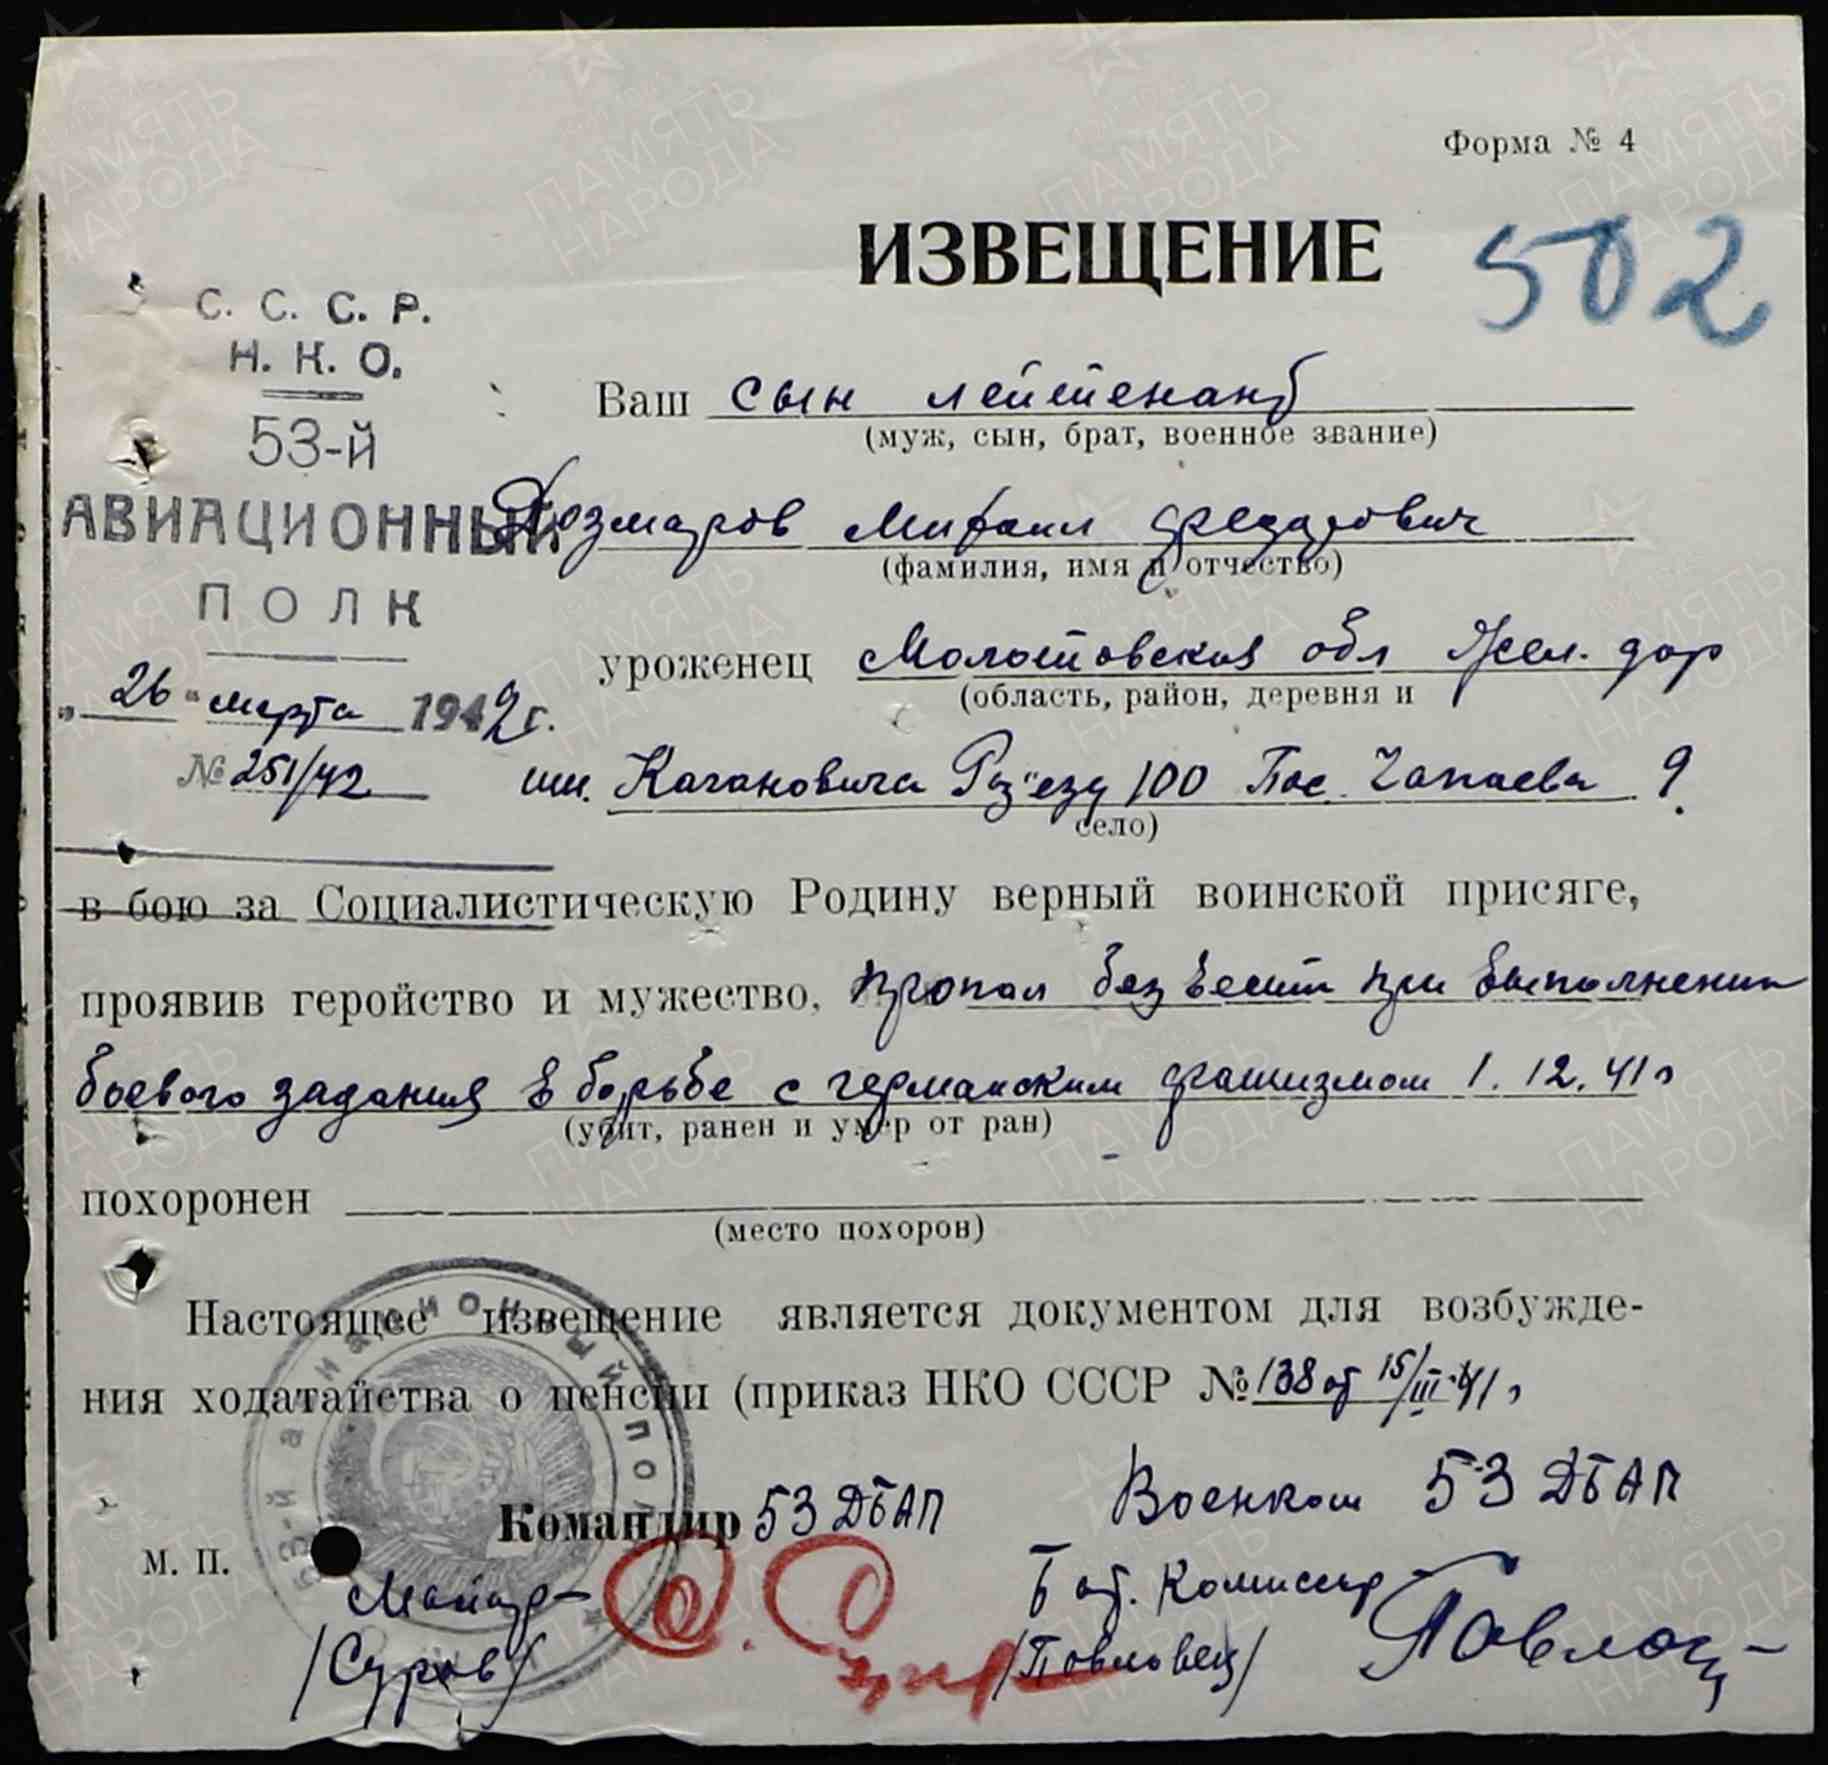 Форма № 4
ИЗВЕЩЕНИЕ
502
С. С. С. Р.
Н. К. О.
53-й
АВИАЦИОННЫЙ
ПОЛК
„ 26 " марта 1942 г.
№ 251/42
Ваш сын лейтенант
(муж, сын, брат, военное звание)
Дозмаров Михаил Федорович
(фамилия, имя и отчество)
уроженец Молотовская обл Жел. дор
(область, район, деревня и
им. Кагановича Раз"езд 100 Пос. Чапаева 9.
село)
в бою за Социалистическую Родину верный воинской присяге,
проявив геройство и мужество, пропал без вести при выполнении
боевого задания в борьбе с германским фашизмом 1.12.41г
(убит, ранен и умер от ран)
похоронен
(место похорон)
Настоящее извещение является документом для возбужде-
ния ходатайства о пенсии (приказ НКО СССР № 138 от 15/III-41г
53-й авиационный полк
Командир 53 ДБАП
Военком 53 ДБАП
М. П.
Майор
Бат. Комиссар
/Суров/
/Павловец/
ПАМЯТЬ
НАРОДА